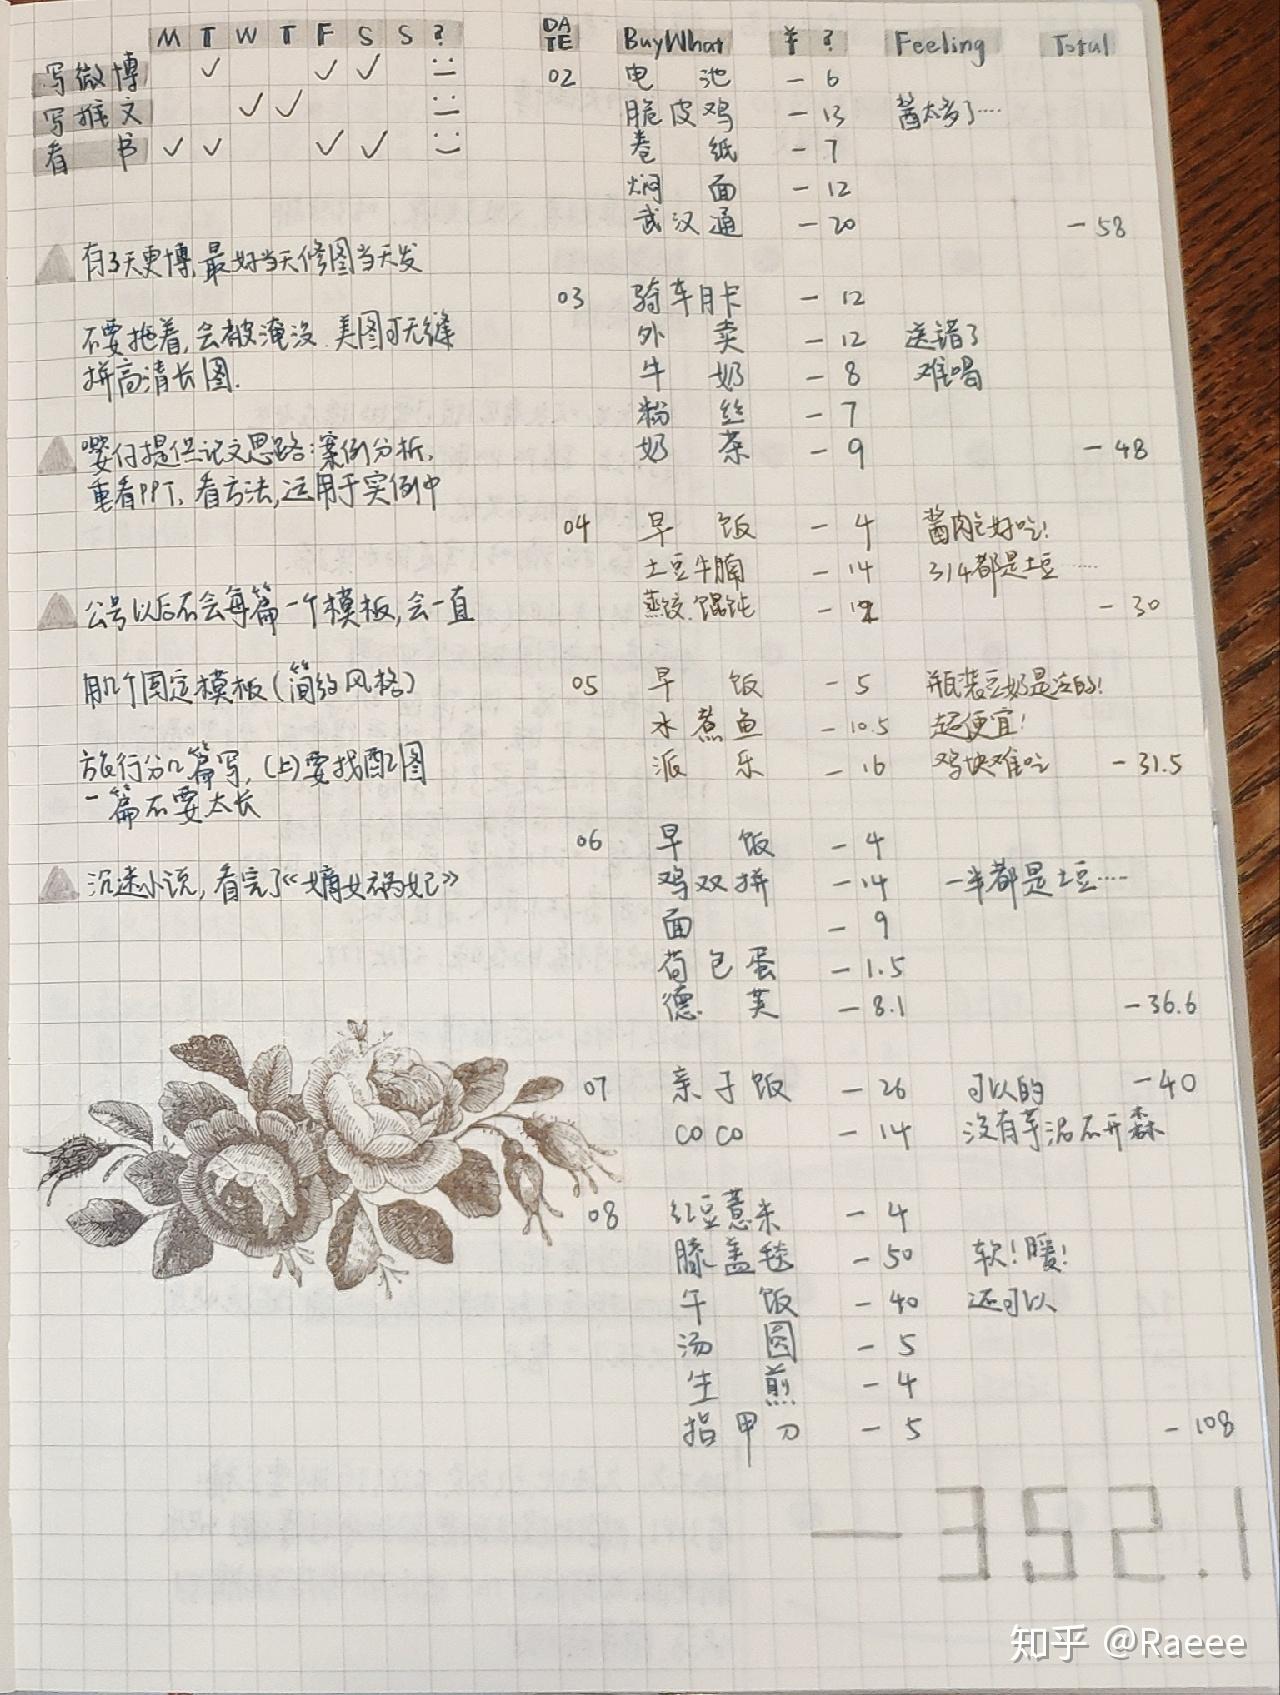 M T W T F S S ?
写微博 ✓ ✓ ✓
写推文 ✓ ✓
看书 ✓ ✓ ✓ ✓
有3天更博,最好当天修图当天发
不要拖着,会被淹没.美图可无缝
拼高清长图.
要付提供论文思路:案例分析,
重看PPT,看方法,运用于实例中
公号以后不会每篇一个模板,会一直
用几个固定模板(简约风格)
旅行分几篇写,(上)要找配图
一篇不要太长
沉迷小说,看完了《嫡女祸妃》
DATE BuyWhat ¥? Feeling Total
02 电池 -6
脆皮鸡 -13 酱太多了····
卷纸 -7
焖面 -12
武汉通 -20 -58
03 骑车月卡 -12
外卖 -12 送错了
牛奶 -8 难喝
粉丝 -7
奶茶 -9 -48
04 早饭 -4 酱肉包好吃!
土豆牛腩 -14 3/4都是土豆····
蒸饺.馄饨 -12 -30
05 早饭 -5 瓶装豆奶是注的!
水煮鱼 -10.5 超便宜!
派乐 -16 鸡块难吃 -31.5
06 早饭 -4
鸡双拼 -14 一半都是土豆····
面 -9
荷包蛋 -1.5
德芙 -8.1 -36.6
07 亲子饭 -26 可以的 -40
COCO -14 没有芋泥不开森
08 红豆薏米 -4
膝盖毯 -50 软!暖!
午饭 -40 还可以
汤圆 -5
生煎 -4
指甲刀 -5 -108
-352.1
知乎 @Raeee